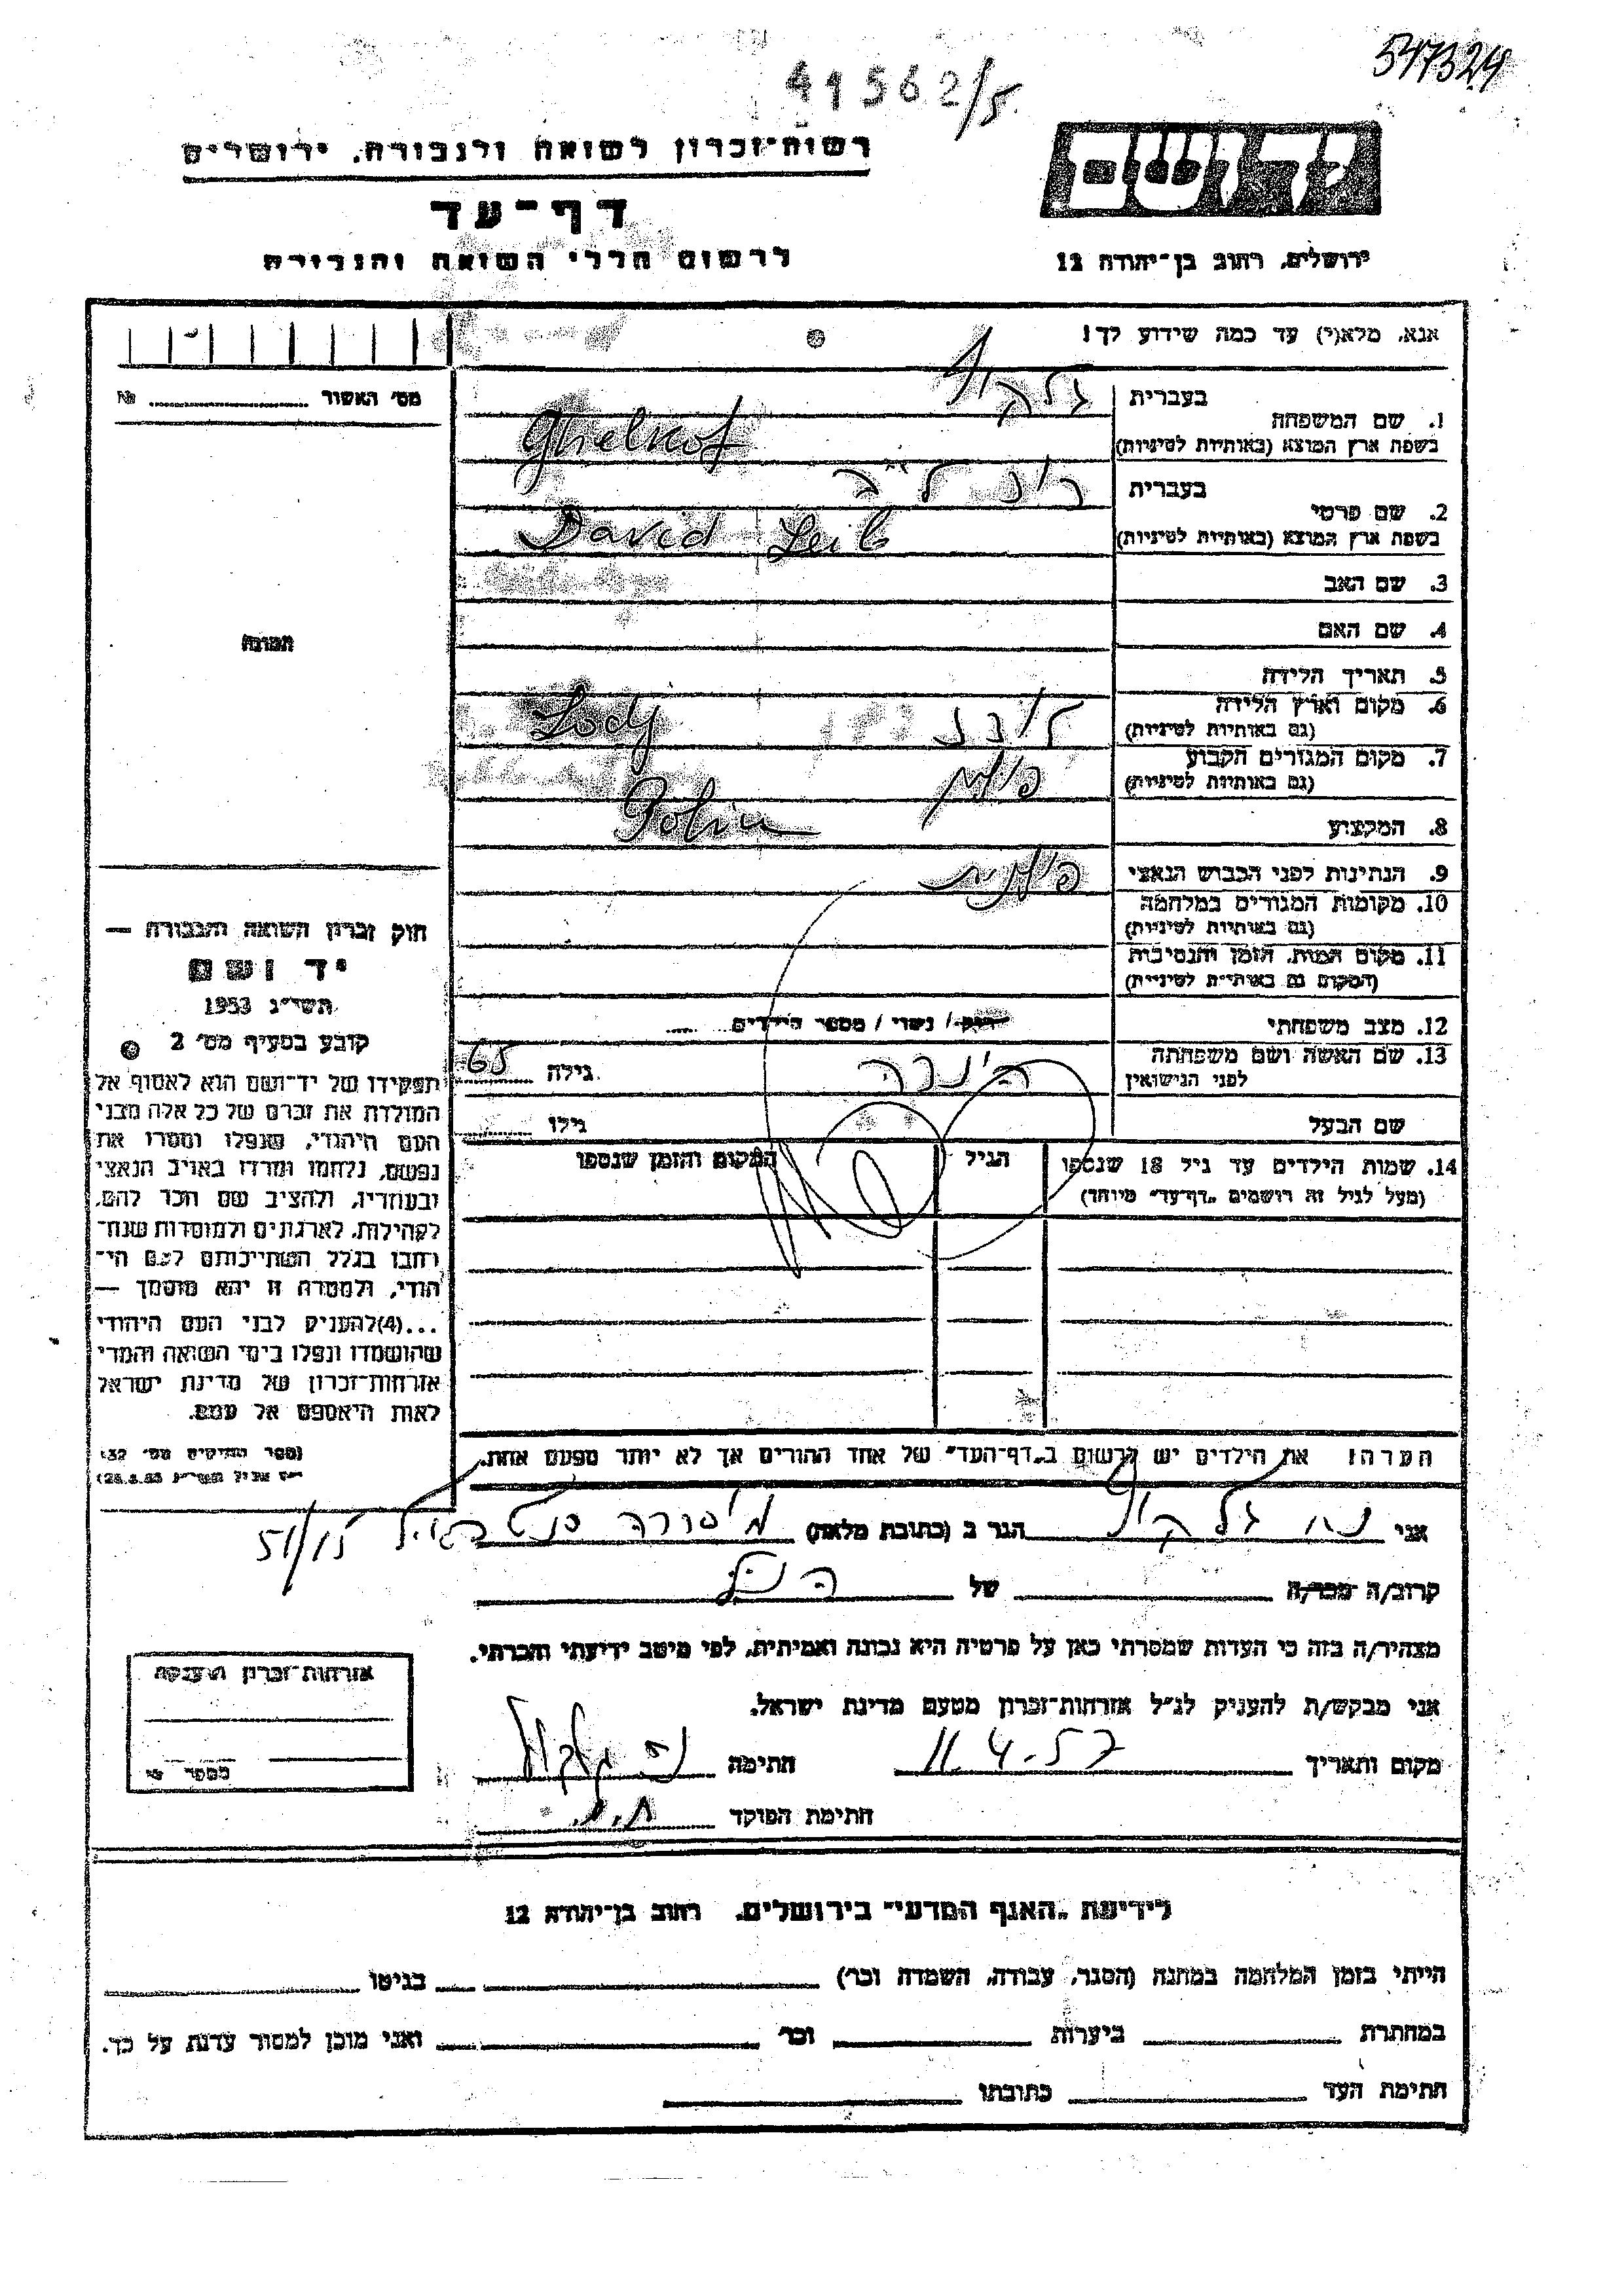 547324
41562/5
יד ושם
רשות־זכרון לשואה ולגבורה, ירושלים
דף־עד
לרשום חללי השואה והגבורה
ירושלים, רחוב בן־יהודה 12
אנא, מלא(י) עד כמה שידוע לך!
מס׳ האשור № 
1. שם המשפחה
בעברית
גלקוף
בשפת ארץ המוצא (באותיות לטיניות)
Ghelkof
2. שם פרטי
בעברית
דוד לייב
בשפת ארץ המוצא (באותיות לטיניות)
David Leib
3. שם האב
4. שם האם
5. תאריך הלידה
6. מקום וארץ הלידה
(גם באותיות לטיניות)
לודג Lodj
7. מקום המגורים הקבוע
(גם באותיות לטיניות)
פולין
Polin
8. המקצוע
9. הנתינות לפני הכבוש הנאצי
פולנית
10. מקומות המגורים במלחמה
(גם באותיות לטיניות)
11. מקום המות, הזמן והנסיבות
(המקום גם באותיות לטיניות)
12. מצב משפחתי
רוק/ נשוי / מספר הילדים
13. שם האשה ושם משפחתה
לפני הנישואין
גילה 65
שם הבעל
גילו
14. שמות הילדים עד גיל 18 שנספו
(מעל לגיל זה רושמים „דף־עד״ מיוחד)
הגיל
המקום והזמן שנספו
הערה: את הילדים יש לרשום ב„דף־העד״ של אחד ההורים אך לא יותר מפעם אחת.
תמונה
חוק זכרון השואה והגבורה —
יד ושם
תשי״ג 1953
קובע בסעיף מס׳ 2
תפקידו של יד־ושם הוא לאסוף אל
המולדת את זכרם של כל אלה מבני
העם היהודי, שנפלו ומסרו את
נפשם, נלחמו ומרדו באויב הנאצי
ובעוזריו, ולהציב שם וזכר להם,
לקהילות, לארגונים ולמוסדות שנח־
רבו בגלל השתייכותם לעם הי־
הודי, ולמטרה זו יהא מוסמך —
...(4)להעניק לבני העם היהודי
שהושמדו ונפלו בימי השואה והמרי
אזרחות־זכרון של מדינת ישראל
לאות היאספם אל עמם.
(ספר החוקים מס׳ 132,
אני גלקוף הגר ב (כתובת מלאה) 51/15
קרוב/ה מכר/ה של הנ״ל
מצהיר/ה בזה כי העדות שמסרתי כאן על פרטיה היא נכונה ואמיתית, לפי מיטב ידיעתי והכרתי.
אני מבקש/ת להעניק לנ״ל אזרחות־זכרון מטעם מדינת ישראל.
מקום ותאריך 11.4.57 חתימה
חתימת הפוקד
אזרחות־זכרון הוענקה
מספר
לידיעת „האגף המדעי״ בירושלים, רחוב בן־יהודה 12
הייתי בזמן המלחמה במחנה (הסגר, עבודה, השמדה וכו׳) בגיטו
במחתרת ביערות וכו׳ ואני מוכן למסור עדות על כך.
חתימת העד כתובתו